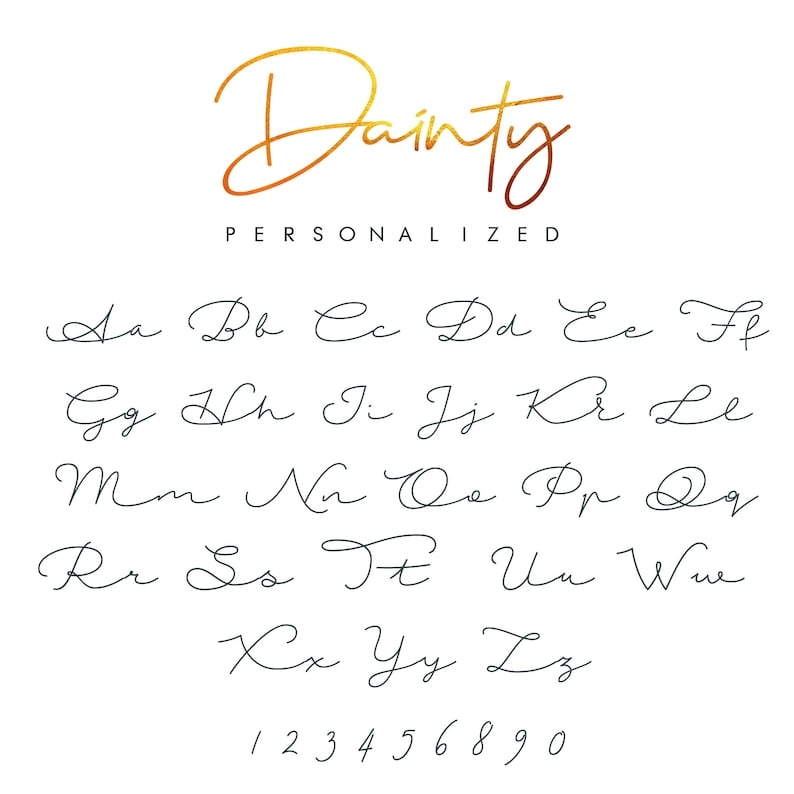 Dainty
PERSONALIZED
Aa Bb Cc Dd Ee Ff
Gg Hh Ii Jj Kk Ll
Mm Nn Oo Pp Qq
Rr Ss Tt Uu Ww
Xx Yy Zz
1 2 3 4 5 6 8 9 0